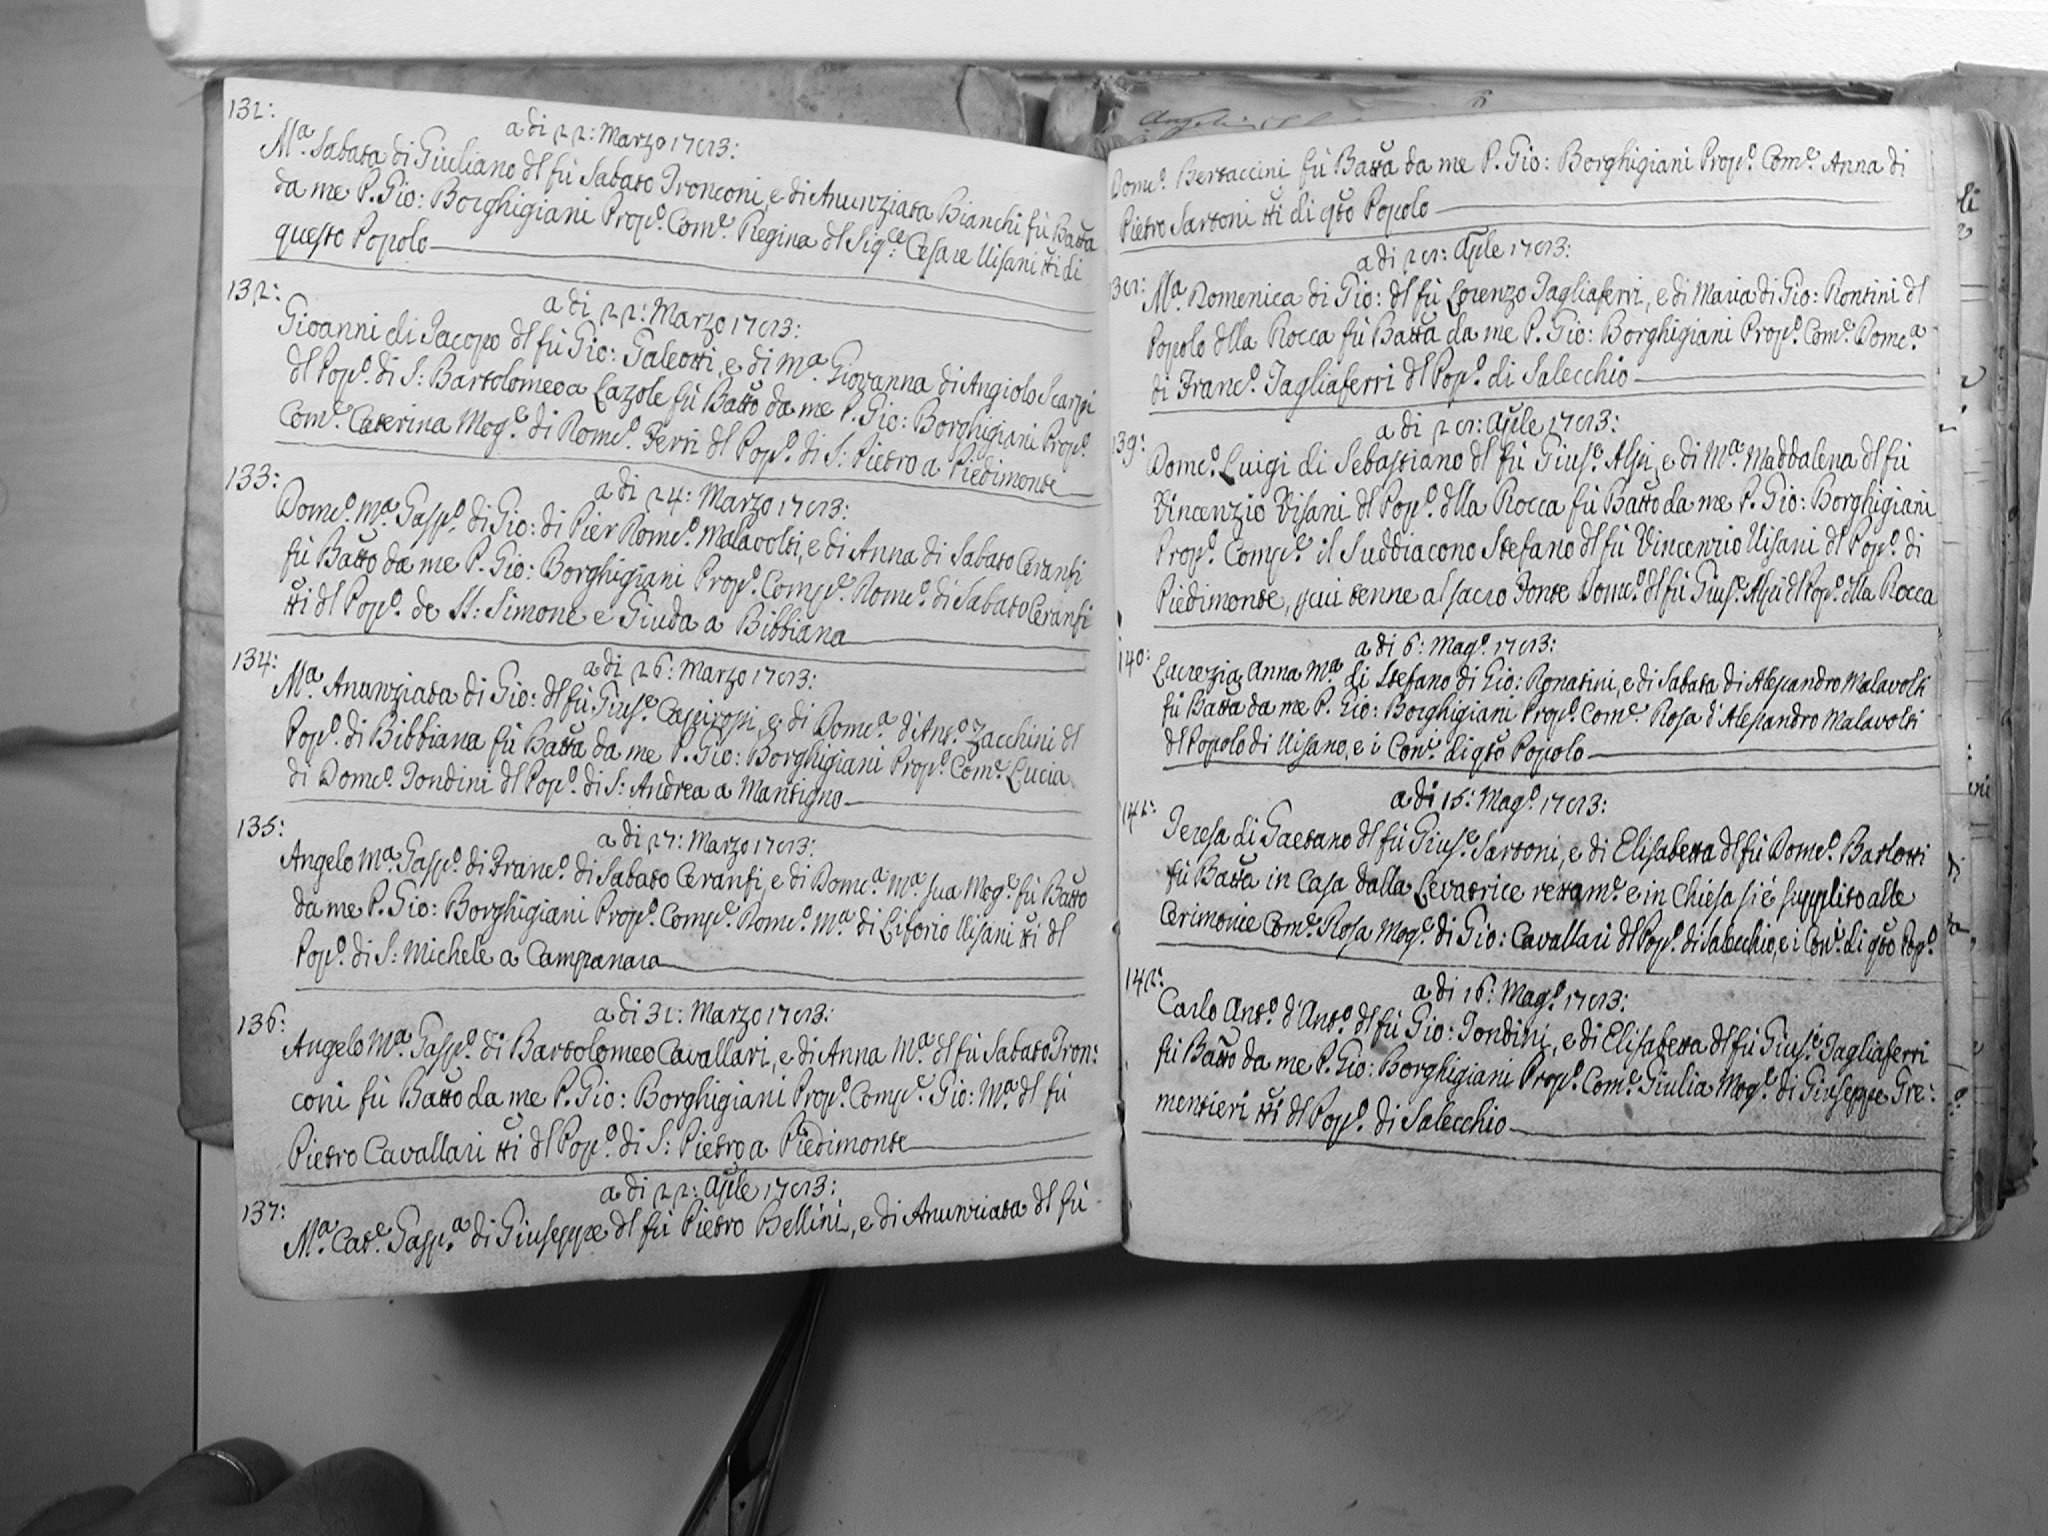 131:
a di 22: Marzo 1783:
Mª Sabata di Giuliano dl fù Sabato Tronconi, e di Anunziata Bianchi fù Batta
da me P. Gio: Borghigiani Propº. Comᵉ. Regina dl Sigᵉ: Cesare Visani tti di
questo Popolo
132:
a di 22: Marzo 1783:
Gioanni di Jacopo dl fù Gio: Galeotti, e di Mª Giovanna di Angiolo Scarpi
dl Popº. di S: Bartolomeo a Lazole fù Batto da me P. Gio: Borghigiani Propº.
Comᵉ. Caterina Mogᵉ. di Domcº. Ferri dl Popº. di S: Pietro a Piedimonte
133:
a di 24: Marzo 1783:
Domcº. Mª. Gaspº. di Gio: di Pier Domcº. Malavolti, e di Anna di Sabato Ceranfi
fù Batto da me P. Gio: Borghigiani Propº. Compᵉ. Domcº. di Sabato Ceranfi
tti dl Popº. de SS: Simone e Giuda a Bibbiana
134:
a di 26: Marzo 1783:
Mª. Anunziata di Gio: dl fù Giusᵉ. Caseirossi, e di Domcª d'Antº. Zacchini dl
Popº. di Bibbiana fù Batta da me P. Gio: Borghigiani Propº. Comᵉ. Lucia
di Domcº. Tondini dl Popº. di S: Andrea a Mantigno
135:
a di 27: Marzo 1783:
Angelo Mª Gaspº. di Francº. di Sabato Ceranfi, e di Domcª Mª sua Mogᵉ. fù Batto
da me P. Gio: Borghigiani Propº. Compᵉ. Domcº. Mª di Liborio Visani tti dl
Popº. di S: Michele a Campanara
136:
a di 31: Marzo 1783:
Angelo Mª. Gaspº. di Bartolomeo Cavallari, e di Anna Mª dl fù Sabato Tron:
coni fù Batto da me P. Gio: Borghigiani Propº. Compᵉ. Gio: Mª dl fù
Pietro Cavallari tti dl Popº. di S: Pietro a Piedimonte
137:
a di 22: Aple 1783:
Mª. Catᵉ. Gaspª. di Giuseppe dl fù Pietro Bellini, e di Anunziata dl fù
Domcº. Bertaccini fù Batta da me P. Gio: Borghigiani Propº. Comᵉ. Anna di
Pietro Sartoni tti di qto Popolo
a di 28: Aple 1783:
138: Mª Domenica di Gio: dl fù Lorenzo Tagliaferri, e di Maria di Gio: Rontini dl
Popolo dlla Rocca fù Batta da me P. Gio: Borghigiani Propº. Comᵉ. Domcª.
di Francº. Tagliaferri dl Popº. di Salecchio
a di 28: Aple 1783:
139: Domcº. Luigi di Sebastiano dl fù Giusᵉ. Alpi, e di Mª. Maddalena dl fù
Vincenzio Visani dl Popº. dlla Rocca fù Batto da me P. Gio: Borghigiani
Propº. Compᵉ. il Suddiacono Stefano dl fù Vincenzio Visani dl Popº. di
Piedimonte, p cui tenne al sacro Fonte Domcº. dl fù Giusᵉ. Alpi dl Popº. dlla Rocca
a di 6: Magº. 1783:
140: Lucrezia Anna Mª di Stefano di Gio: Donatini, e di Sabata di Alessandro Malavolti
fù Batta da me P. Gio: Borghigiani Propº. Comᵉ. Rosa d'Alessandro Malavolti
dl Popolo di Visano, e i Conⁱ. di qto Popolo
a di 15: Magº. 1783:
141: Teresa di Gaetano dl fù Giusᵉ. Sartoni, e di Elisabetta dl fù Domcº. Barlotti
fù Batta in Casa dalla Levatrice rettamᵉ. e in Chiesa si è supplito alle
Cerimonie Comᵉ. Rosa Mogᵉ. di Gio: Cavallari dl Popº. di Salecchio, e i Conⁱ. di qto Popº.
142:
a di 16: Magº. 1783:
Carlo Antº. d'Antº. dl fù Gio: Tondini, e di Elisabetta dl fù Giusᵉ. Tagliaferri
fù Batto da me P. Gio: Borghigiani Propº. Comᵉ. Giulia Mogᵉ. di Giuseppe Gre:
mentieri tti dl Popº. di Salecchio